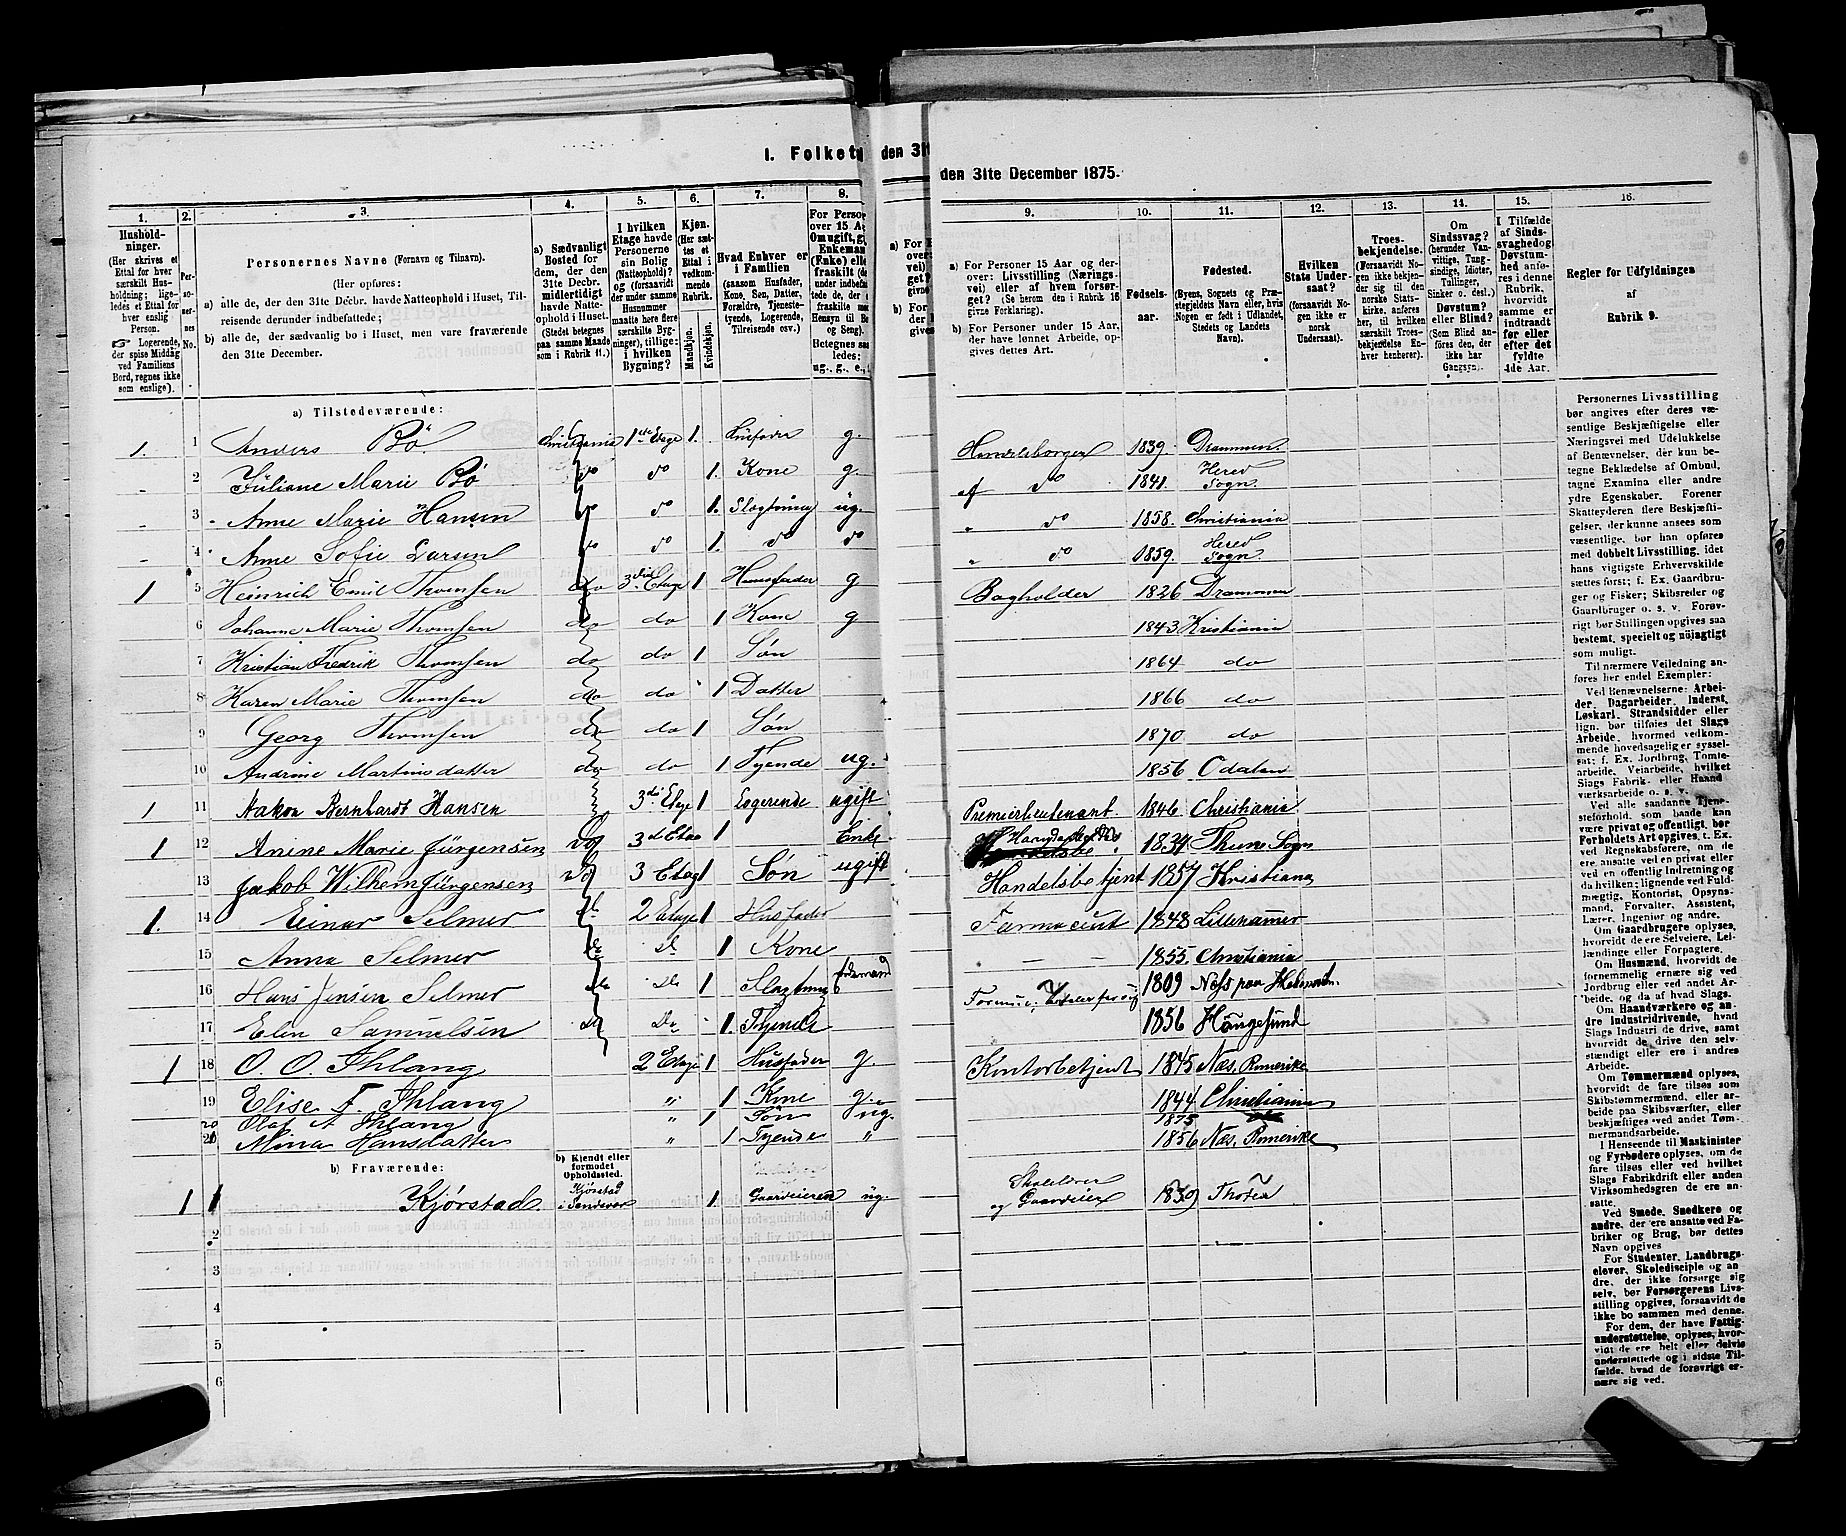 I. Folket
den 31t
den 31te December 1875.
1. 2. 3. 4. 5. 6. 7. 8. 9. 10. 11. 12. 13. 14. 15. 16.
Hushold-
ninger.
(Her skrives et
Ettal for hver
særskilt Hus-
holdning; lige-
ledes et Ettal for
hver enslig
Person.
Logerende,
der spise Middag
ved Familiens
Bord, regnes ikke
som enslige).
Per-
so-
ner-
nes
No.
Personernes Navne (Fornavn og Tilnavn).
(Her opføres:
a) alle de, der den 31te Decbr. havde Natteophold i Huset, Til-
reisende derunder indbefattede;
b) alle de, der sædvanlig bo i Huset, men vare fraværende
den 31te December.
a) Sædvanligt
Bosted for
dem, der den
31te Decbr.
midlertidigt
havde Natte-
ophold i Huset.
(Stedet betegnes
paa samme Maade
som i Rubrik 11.)
I hvilken
Etage havde
Personerne
sin Bolig
(Natteophold)?
og (forsaavidt
der under samme
Husnummer
maatte høre flere
særskilte Byg-
ninger), tillige:
i hvilken
Bygning?
Kjøn.
(Her sæt-
tes et
Ettal i
vedkom-
mende
Rubrik.
Mandkjøn.
Kvindekjøn.
Hvad Enhver er
i Familien
(saasom Husfader,
Kone, Søn, Datter,
Forældre, Tjeneste-
tyende, Logerende,
Tilreisende osv.)
For Person
over 15 A
Om ugift, g
Enkeman
(Enke) elle
fraskilt (de
under indbefat-
Betegnes saa
ledes:
ug., g., e.,
a) For Personer 15 Aar og der-
over: Livsstilling (Nærings-
vei) eller af hvem forsør-
get? (Se herom den i Rubrik 16
givne Forklaring).
b) For Personer under 15 Aar,
der have lønnet Arbeide, op-
gives dettes Art.
Fødsels-
aar.
Fødested.
(Byens, Sognets og Præ-
stegjeldets Navn eller, hvis
Nogen er født i Udlandet,
Stedets og Landets
Navn).
Hvilken
Stats Under-
saat?
(forsaavidt No-
gen ikke er
norsk
Undersaat).
Troes-
bekjendelse.
(Forsaavidt No-
gen ikke bekjen-
der sig til den
norske Stats-
kirke, anføres
her, til hvilken
særskilt Troes-
bekjendelse En-
hver henhører).
Om
Sindssvag?
(herunder Van-
vittige, Tung-
sindige, Idioter,
Tullinger,
Sinker o. desl.)
Døvstum?
eller Blind?
(Som Blind an-
føres den, der
ikke har
Gangsyn).
I Tilfælde
af Sinds-
svaghed og
Døvstum-
hed anfø-
res i denne
Rubrik,
hvorvidt
samme er
indtraadt
før eller
efter det
fyldte
4de Aar.
Regler for Udfyldningen
af
Rubrik 9.
a) Tilstedeværende:
1. 1 Anders Bö Christiania 1ste Etage 1. Husfader g. 1839. Drammen
2 Juliane Marie Bö do do 1. Kone g. do 1841. Hered Sogn.
3 Anne Marie Hansen do do 1. ug. " do 1858. Christiania
4 Anne Sofie Larsen do do 1. do do " do 1859. Hered Sogn.
1 5 Heinrich Emil Thomsen do 3die Etage 1 Huusfader g Bogholder 1826 Drammen
6 Johanne Marie Thomsen do do 1 Kone g 1843 Kristiania
7 Kristian Fredrik Thomsen do do 1 Søn 1864 do
8 Karen Marie Thomsen do do 1 Datter 1866 do
9 Georg Thomsen do do 1 Søn 1870 do
10 Andrine Martinsdatter do do 1 Tyende ug. 1856 Odalen
1 11 Hakon Bernhardt Hansen 3die Etage 1 Logerende ugift Premierlieutenant 1846 Christiania
1 12 Anine Marie Jürgensen Do 3die Etage 1 Enke 1834 Thune Sogn
13 Jakob Wilhem Jürgensen Do 3 Etag 1 Søn ugift Handelsbetjent 1857 Kristiana
1. 14 Einar Selmer Do 2 Etage 1 Husfader Farmaceut 1848 Lillehammer
15 Anna Selmer Do Do 1 Kone — — 1855. Christiania
16 Hans Jensen Selmer Do Do 1 1809
17 Elin Samuelsen Do Do 1. Tjende 1856 Høugesund
1 18 O. O. Ihlang 2 Etage 1 Husfader g. Kontorbetjent 1845 Næs. Romerike
19 Elise F. Ihlang " 1 Kone g. 1844 Christiania
20 Olaf A Ihlang " 1 Søn ug. 1875
21 Mina Hansdatter " 1 Tyende " 1856 Næs. Romerike
b) Fraværende:
b) Kjendt eller
formodet
Opholdssted.
1 1 Kjørstad Kjørstad i 1. Gaardeieren ug. og Gaardeier 1839 Thoten
2
3
4
5
6
Personernes Livsstilling
bør angives efter deres væ-
sentlige Beskjæftigelse eller
Næringsvei med Udelukkelse
af Benævnelser, der kun be-
tegne Beklædelse af Ombud,
tagne Examina eller andre
ydre Egenskaber. Forener
Skatteyderen flere Beskjæfti-
gelser, der kunne ansees som
væsentlige, bør han opføres
med dobbelt Livsstilling, idet
hans vigtigste Erhvervskilde
sættes først; f. Ex. Gaardbru-
ger og Fisker; Skibsreder og
Gaardbruger o. s. v. Forøv-
rigt bør Stillingen opgives saa
bestemt, specielt og nøjagtigt
som muligt.
Til nærmere Veiledning an-
føres her endel Exempler:
Ved Benævnelserne: Arbei-
der, Dagarbeider, Inderst,
Løskarl, Strandsidder eller
lign. bør tilføies det Slags
Arbeide, hvormed vedkom-
mende hovedsagelig er syssel-
sat; f. Ex. Jordbrug, Tomte-
arbeide, Veiarbeide, hvilket
Slags Fabrik- eller Haand-
værksarbeide o. s. v.
Ved alle saadanne Tjene-
steforhold, som baade kan
være privat og offentligt, bør
Forholdets Art opgives, t. Ex.
ved Regnskabsførere, om de
ere ansatte ved en privat eller
ved en offentlig Indretning og
da hvilken; lignende ved Fuld-
mægtig, Kontorist, Opsyns-
mand, Forvalter, Assistent,
Lærer, Ingeniør og andre.
Om Gaardbrugere oplyses,
hvorvidt de ere Selveiere, Lei-
lændinge eller Forpagtere.
Om Husmænd, hvorvidt de
fornemmelig ernære sig ved
Jordbrug eller ved andet Ar-
beide, og da af hvad Slags.
Om Haandværkere og an-
dre Industridrivende, hvad
Slags Industri de drive, samt
hvorvidt de drive den selv-
stændigt eller ere i andres
Arbeide.
Om Tømmermænd oplyses,
hvorvidt de fare tilsøs som
Skibstømmermænd, eller ar-
beide paa Skibsværfter, eller
beskjæftiges ved andet Tøm-
mermandsarbeide.
I Henseende til Maskinister
og Fyrbødere oplyses, om de
fare tilsøs eller ved hvilket
Slags Fabrikdrift eller anden
Virksomhed de ere an-
satte.
Ved Smede, Snedkere og
andre, der ere ansatte ved Fa-
briker og Brug, bør dettes
Navn opgives.
For Studenter, Landbrugs-
elever, Skoledisciple og an-
dre, der ikke forsørge sig
selv, bør Forsørgerens Livs-
stilling opgives, forsaavidt de
ikke bo sammen med denne.
For dem, der have Fattig-
understøttelse, oplyses, hvor-
vidt de ere helt eller delvis
understøttede og i sidste Til-
fælde, hvad de forøvrigt er-
nære sig ved.